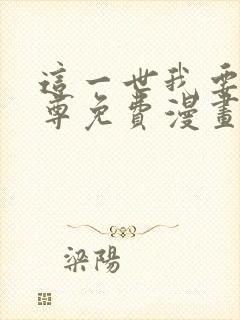 這一世我要
尊免費漫畫
梁陽